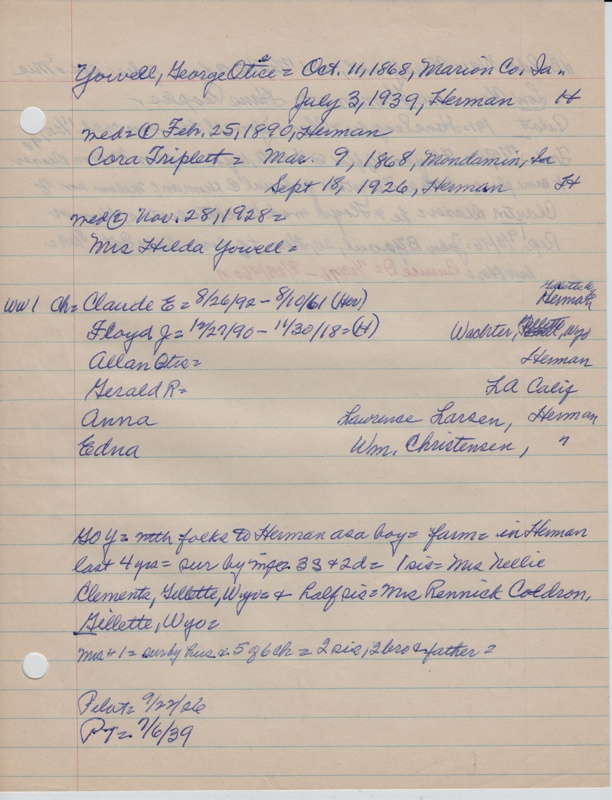 Yowell, George Otice = Oct. 11, 1868, Marion Co, Ia.
July 3, 1939, Herman H
med = ① Feb. 25, 1890, Herman
Cora Triplett = Mar. 9, 1868, Mondamin, Ia
Sept 18, 1926, Herman H
med ② Nov. 28, 1928 =
Mrs Hilda Yowell =
WW1 Ch = Claude E = 8/26/92 - 8/10/61 (Her) Herman
Floyd J = 12/27/90 - 11/30/18 = (H) Wachter, Wyo
Allan Otis = Herman
Gerald R = LA Calif
Anna Lawrence Larsen, Herman
Edna Wm. Christensen, "
GOY = with folks to Herman as a boy = farm = in Herman
last 4 yrs = sur by 3S + 2d = 1 sis = Mrs Nellie
Clements, Gillette, Wyo = + half sis = Mrs Rennick Coldron,
Gillette, Wyo =
Mrs #1 = sur by hus + 5 of 6 ch = 2 sis, 2 bro + father =
Pilot = 9/22/26
PT = 7/6/39